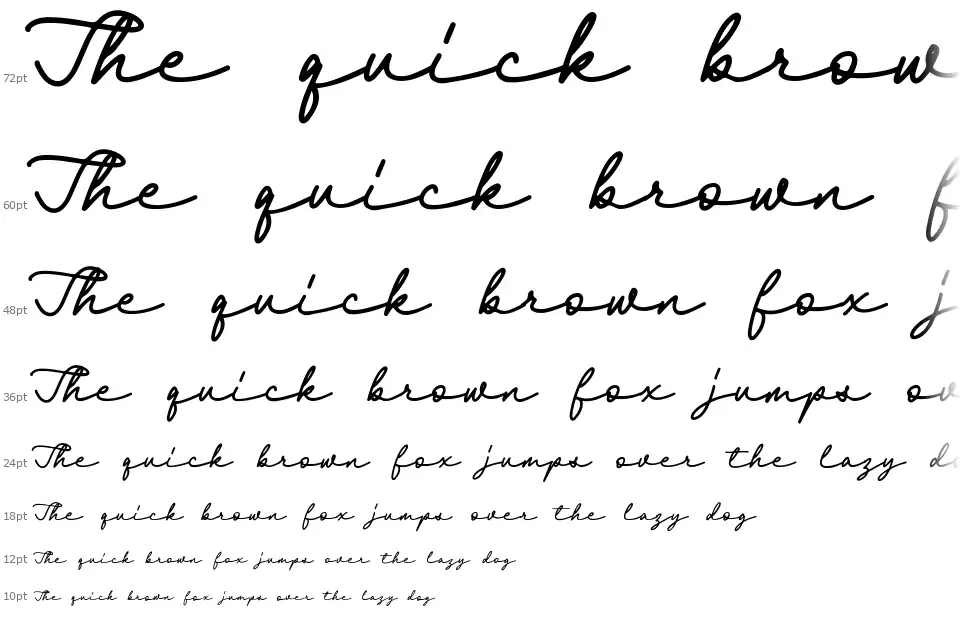 72pt The quick brow
60pt The quick brown f
48pt The quick brown fox j
36pt The quick brown fox jumps ov
24pt The quick brown fox jumps over the lazy do
18pt The quick brown fox jumps over the lazy dog
12pt The quick brown fox jumps over the lazy dog
10pt The quick brown fox jumps over the lazy dog